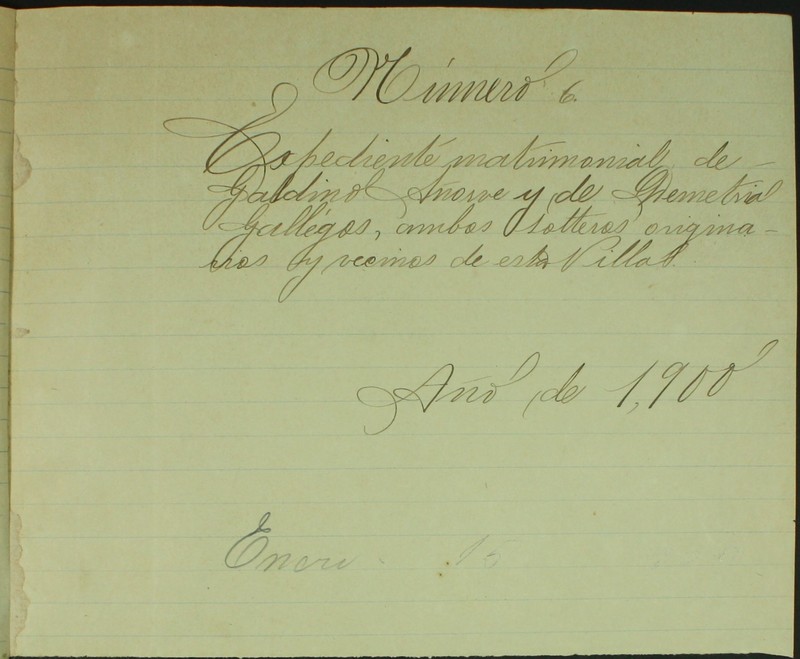 Número 6.
Expediente matrimonial de
Galdino Añorve y de Demetria
Gallégos, ambos solteros, origina-
rios y vecinos de esta Villa.
Año de 1,900
Enero 15